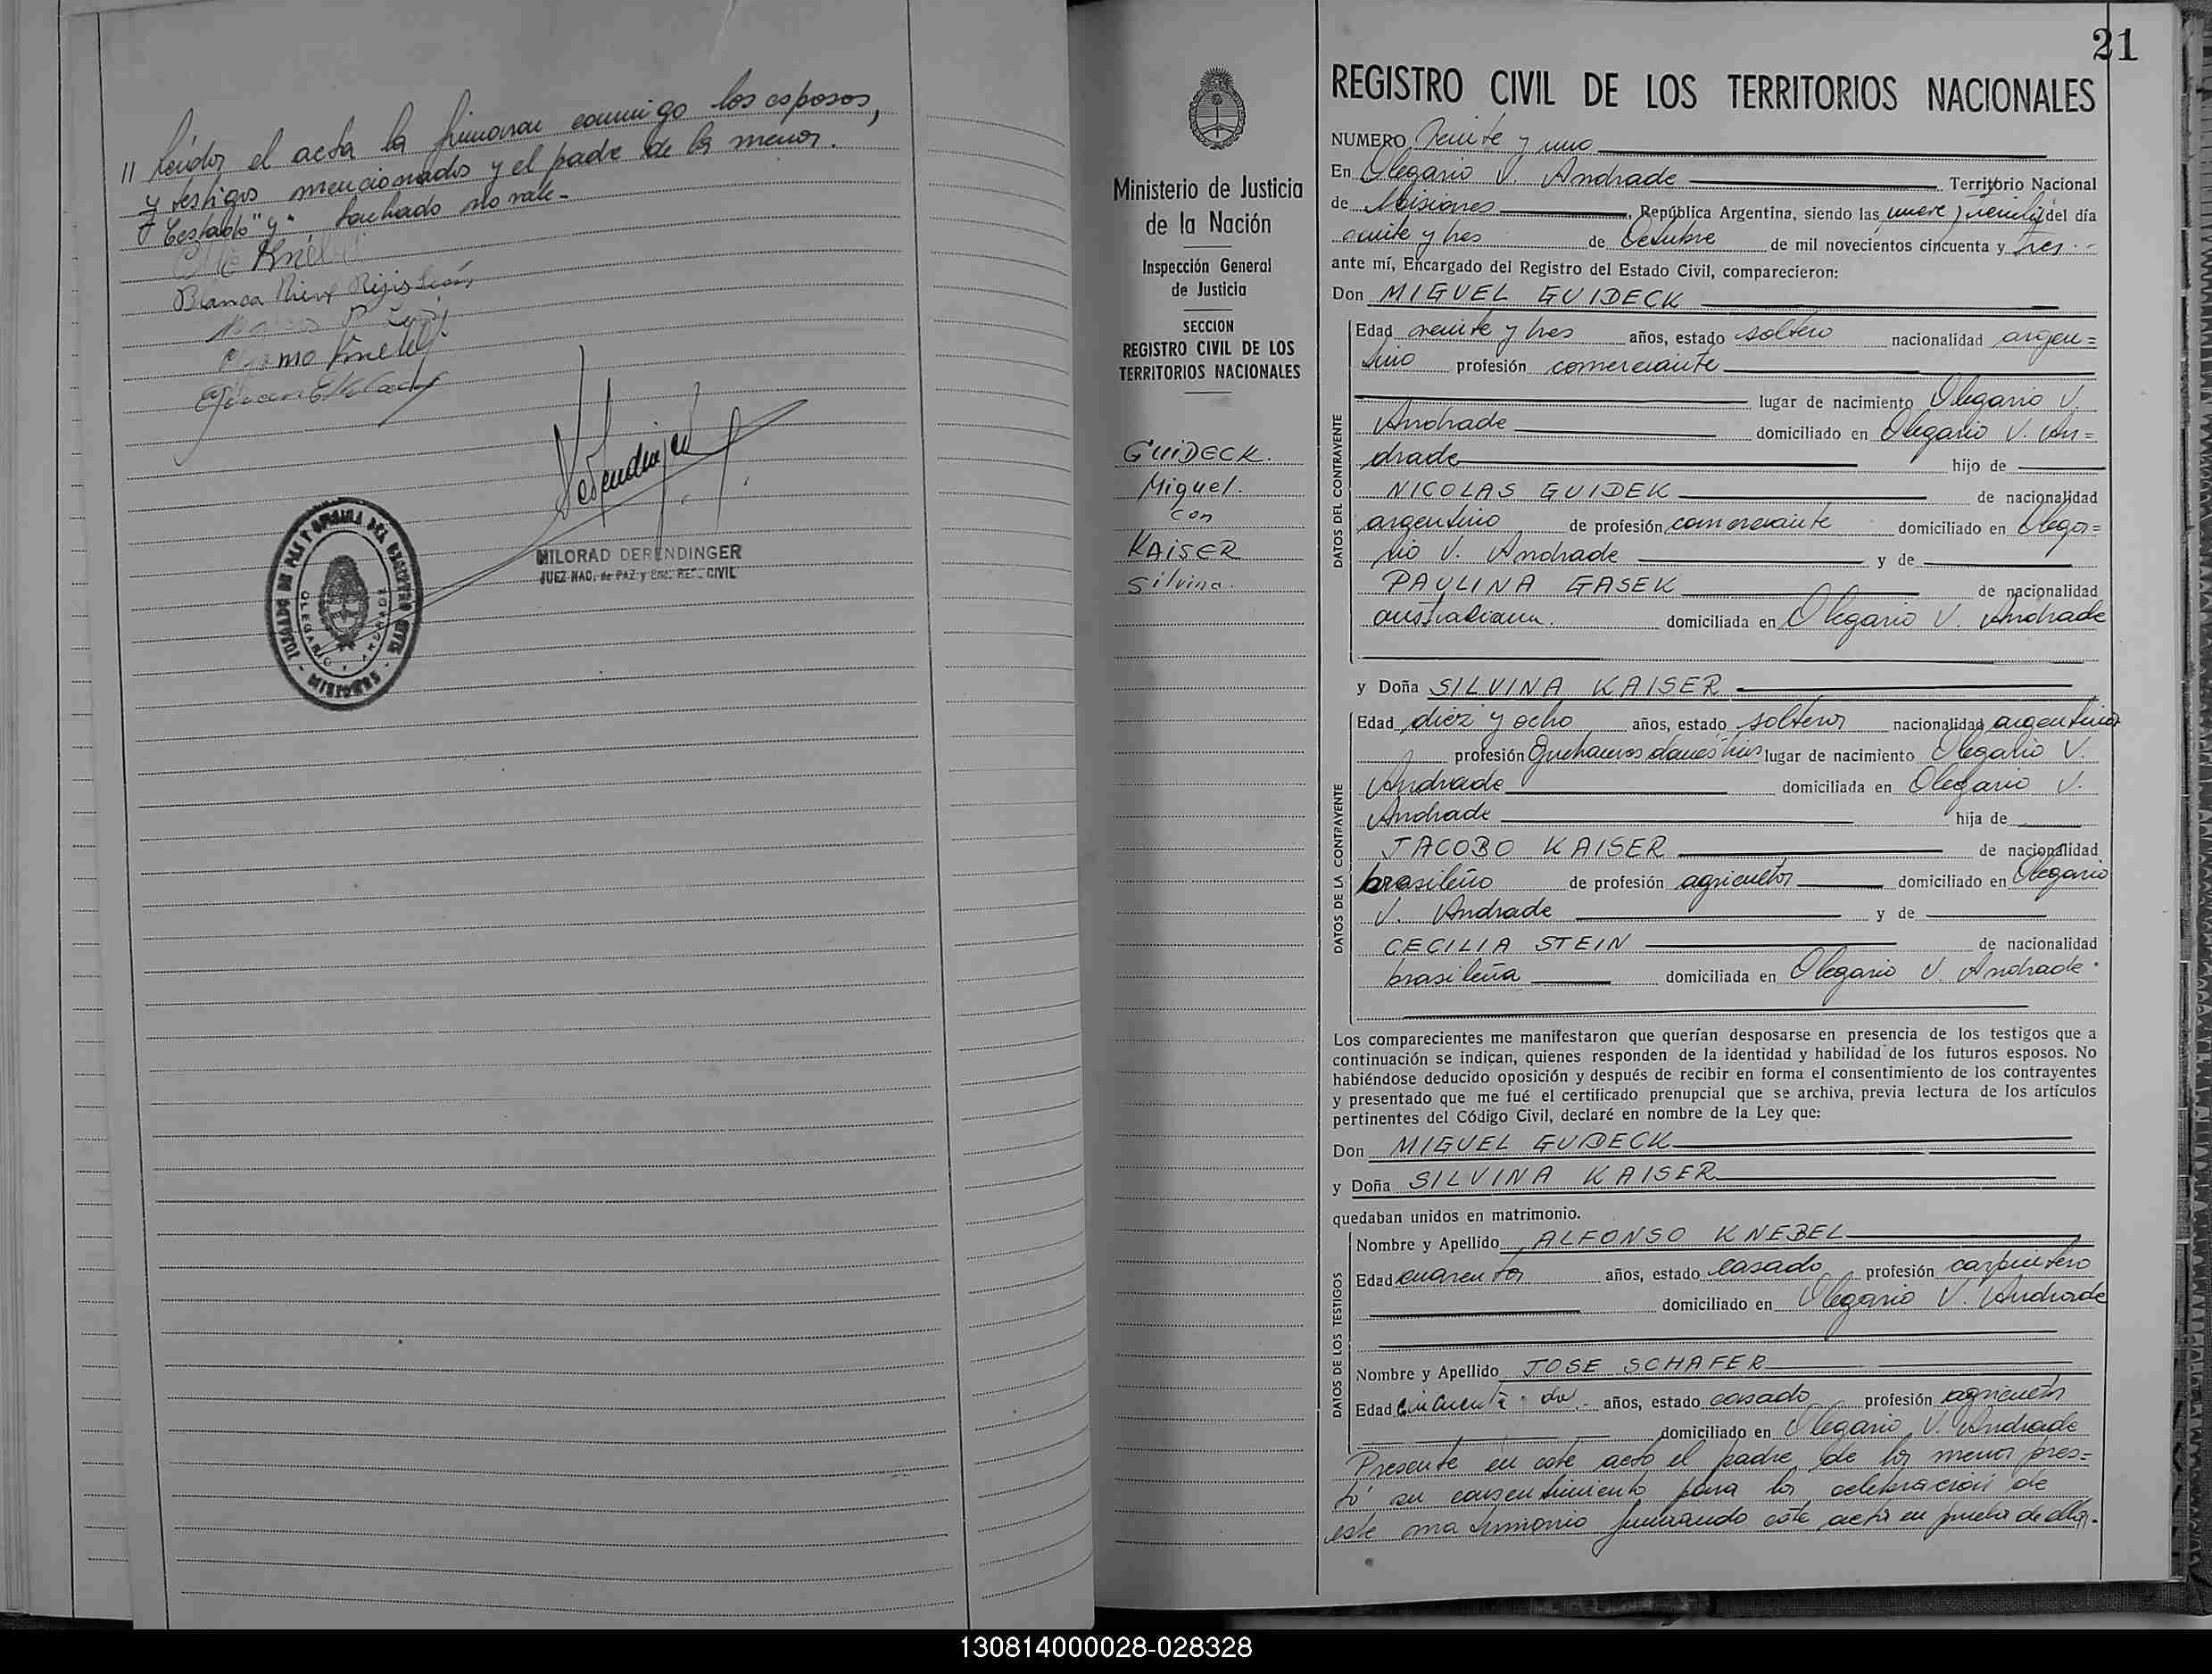 // leída, el acta la firmaron conmigo los esposos,
y testigos mencionados y el padre de la menor.
Testado "y" tachado no vale-
Blanca
MILORAD DERENDINGER
JUEZ NAC. de PAZ y ENC. REG. CIVIL
JUZGADO DE PAZ Y OFICINA DEL REGISTRO CIVIL
OLEGARIO V. ANDRADE
- MISIONES -
21
Ministerio de Justicia
de la Nación
Inspección General
de Justicia
SECCION
REGISTRO CIVIL DE LOS
TERRITORIOS NACIONALES
GUIDECK.
Miguel.
con
KAISER
Silvina.
REGISTRO CIVIL DE LOS TERRITORIOS NACIONALES
NUMERO Veinte y uno
En Olegario V. Andrade Territorio Nacional
de Misiones, República Argentina, siendo las nueve y treinta del día
veinte y tres de Octubre de mil novecientos cincuenta y tres.-
ante mí, Encargado del Registro del Estado Civil, comparecieron:
Don MIGUEL GUIDECK
DATOS DEL CONTRAYENTE
Edad veinte y tres años, estado soltero nacionalidad argen=
tino profesión comerciante
lugar de nacimiento Olegario V.
Andrade domiciliado en Olegario V. An=
drade hijo de
NICOLAS GUIDEK de nacionalidad
argentino de profesión comerciante domiciliado en Olega=
rio V. Andrade y de
PAULINA GASEK de nacionalidad
domiciliada en Olegario V. Andrade
y Doña SILVINA KAISER
DATOS DE LA CONTRAYENTE
Edad diez y ocho años, estado soltera nacionalidad argentina
profesión Quehaceres domésticos lugar de nacimiento Olegario V.
Andrade domiciliada en Olegario V.
Andrade hija de
JACOBO KAISER de nacionalidad
brasileño de profesión agricultor domiciliado en Olegario
V. Andrade y de
CECILIA STEIN de nacionalidad
brasileña domiciliada en Olegario V. Andrade.
Los comparecientes me manifestaron que querían desposarse en presencia de los testigos que a
continuación se indican, quienes responden de la identidad y habilidad de los futuros esposos. No
habiéndose deducido oposición y después de recibir en forma el consentimiento de los contrayentes
y presentado que me fué el certificado prenupcial que se archiva, previa lectura de los artículos
pertinentes del Código Civil, declaré en nombre de la Ley que:
Don MIGUEL GUIDECK
y Doña SILVINA KAISER
quedaban unidos en matrimonio.
DATOS DE LOS TESTIGOS
Nombre y Apellido ALFONSO KNEBEL
Edad cuarenta años, estado casado profesión carpintero
domiciliado en Olegario V. Andrade
Nombre y Apellido JOSE SCHAFER
Edad cincuenta y dos.- años, estado casado profesión agricultor
domiciliado en Olegario V. Andrade
Presente en este acto el padre de la menor pres=
tó su consentimiento para la celebración de
este matrimonio firmando este acta en prueba de ello.-
130814000028-028328